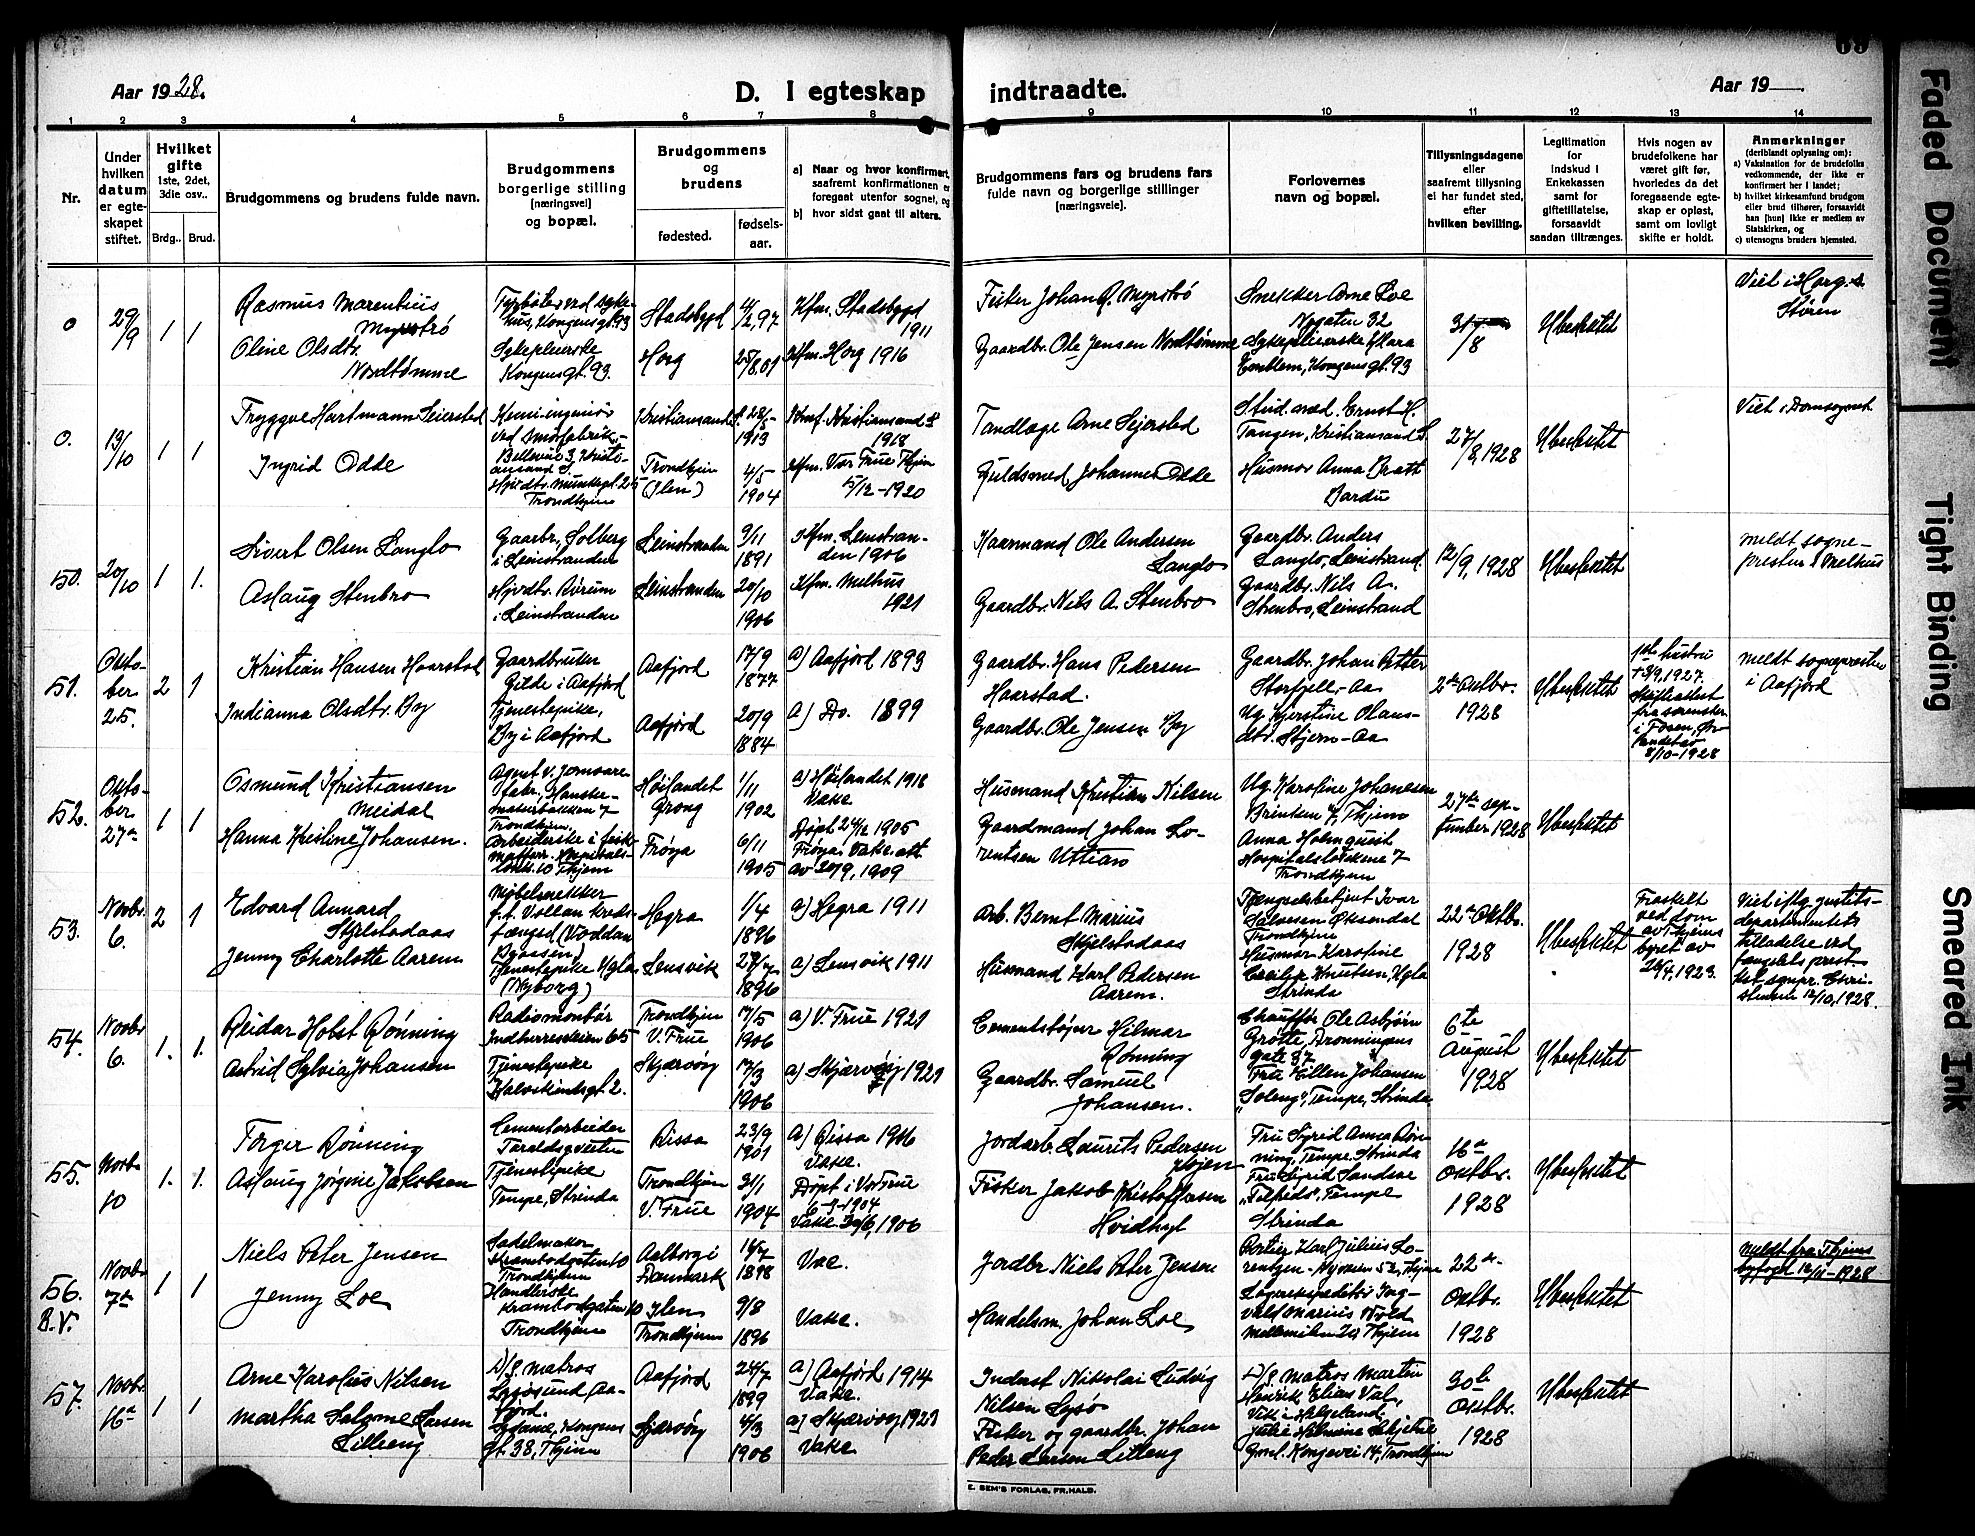 69
Aar 1928.
D. I egteskap
indtraadte.
Aar 19
1 2 3 4 5 6 7 8 9 10 11 12 13 14
Nr.
Under
hvilken
datum
er egte-
skapet
stiftet.
Hvilket
gifte
1ste, 2det,
3die osv..
Brdg.. Brud.
Brudgommens og brudens fulde navn.
Brudgommens
borgerlige stilling
(næringsvei)
og bopæl.
Brudgommens
og
brudens
fødested.
fødsels-
aar.
a) Naar og hvor konfirmert,
saafremt konfirmationen er
foregaat utenfor sognet, og
b) hvor sidst gaat til alters.
Brudgommens fars og brudens fars
fulde navn og borgerlige stillinger
(næringsveie).
Forlovernes
navn og bopæl.
Tillysningsdagene
eller
saafremt tillysning
ei har fundet sted,
efter
hvilken bevilling.
Legitimation
for
indskud i
Enkekassen
samt for
giftetillatelse,
forsaavidt
saadan tiltrænges.
Hvis nogen av
brudefolkene har
været gift før,
hvorledes da det
foregaaende egte-
skap er opløst,
samt om lovligt
skifte er holdt.
Anmerkninger
(deriblandt oplysning om):
a) Vaksination for de brudefolks
vedkommende, der ikke er
konfirmert her i landet;
b) hvilket kirkesamfund brudgom
eller brud tilhører, forsaavidt
han [hun] ikke er medlem av
Statskirken, og
c) utensogns bruders hjemsted.
0
29/9
1 1
Rasmus Marentius
Myrströ
Oline Olsdtr.
Nordtømme
Kongensgt. 93
Sykepleierske
Kongensgt. 93.
Stadsbygd
Horg
4/2, 97
25/8.01
Kfm. Stadsbygd
1911
Kfm. Horg 1916
Fisker Johan R. Myrströ
Gaardbr. Ole Jensen Nordtømme
Snekker Arne Loe
Nygaten 32
Sykepleierske Klara
Emblem, Kongensgt. 93
31/8
Ubeskattet
Viet i Horg. s.
Støren
0.
13/10
1 1
Tryggve Hartmann Seiersted
Ingrid Odde
Kemi-ingeniør
Hjvdtr. Munkegt. 25
Trondhjem
Kristiansand S.
Trondhjem
(Ilen)
28/5-
1913
4/5
1904
Konf. Kristiansand S
1918
Kfm. Vor Frue Thjem
5/12-1920
Tandlæge Arne Sejersted
Guldsmed Johannes Odde
Stud. med. Ernst H.
Tangen, Kristiansand S.
Husmor Anna Bratt
Bardu
27/8, 1928
Ubeskattet
Viet i Domsognet.
50.
20/10
1 1.
Sivert Olsen Langlo
Aslaug Stenbro
Gaardbr. Solberg
i Leinstranden
Hjvdtr. Rörum
i Leinstranden
Leinstranden
Leinstranden
9/11
1891
20/10
1906
Kfm. Leinstran-
den 1906
Kfm. Melhus
1921
Kaarmand Ole Andersen
Langlo
Gaardbr. Nils A. Stenbro
Gaardbr. Anders
Langlo, Leinstrand.
Gaardbr. Nils A.
Stenbro, Leinstrand
12/9, 1928
Ubeskattet
Meldt sogne-
presten i Melhus
51.
Okto-
ber
25.
2 1
Kristian Hansen Haarstad
Indianna Olsdtr. By
Gaardbruker
Gilde i Aafjord
Tjenestepike,
By i Aafjord
Aafjord
Aafjord
17/9
1877
20/9
1884
a) Aafjord 1893
a) Do. 1899
Gaardbr. Hans Pedersen
Haarstad.
Gaardbr. Ole Jensen By
Gaardbr. Johan Petter
Storfjell, Aa
Ug. Kjerstine Olaus-
dtr. Stjern-Aa
2den Oktbr.
1928
Ubeskattet
1ste hustru
+ 3/9, 1927.
Skifteattest
fra sorensker
i Fosen, Ør-
landet
8/10-1928
Meldt sognepresten
i Aafjord
52.
Okto-
ber
27de
1 1
Osmund Kristiansen
Meidal
Hanna Kristine Johansen.
Trondhjem.
Arbeiderske i
Høilandet
Grong
Frøya
1/11
1902
6/11
1905
a) Høilandet 1918
Vakc.
Døpt 24/12 1905
Frøya. Vakc. att.
av 20/9, 1909
Husmand Kristian Nilsen
Gaardmand Johan Lo-
rentsen Uttian
Ug. Karoline Johansen
Brinken 7, Thjem
Anna Holmquist
Hospitalsløkkene 7
Trondhjem
27de sep-
tember 1928
Ubeskattet
53.
Novbr.
6.
2 1
Edvard Annard
Skjelstadaas
Jenny Charlotte Aarem
Møbelsnekker
f. t. Vollan Kreds-
fængsel (Voddan
Tjenestepike
(Nyborg)
Hegra
Lensvik
1/4
1896
1896
a) Hegra 1911
a) Lensvik 1911
Arb. Bernt Marius
Skjelstadaas
Husmand Karl Pedersen
Aarem.
Fængselsbetjent Ivar
Halvesen Oksendal
Trondhjem
Husmor Karoline
Cecilie Knutsen, Hgla
Strinda
22de Oktbr.
1928
Ubeskattet
Fraskilt
ved dom
av Thjems
byret av
26/4. 1923.
Viet iflg. justits-
departementets
tilladelse ved
fængselsprest
12/10, 1928.
54.
Novbr
6.
1. 1.
Reidar Holst Rønning
Astrid Sylvia Johansen
Radiomontør
Indherredsveien 65
Tjenestepike
Kalvskindsgt. 2.
Trondhjem
V. Frue
Skjærvøy
17/5
1906
17/3
1906
a) V. Frue 1921
a) Skjærvøy 1921
Cementstøper Hilmar
Rønning
Gaardbr. Samuel
Johansen.
Chauffør Ole Asbjørn
Grøtte, Dronningens
gate 37
Fru Ellen Johansen
"Soleng", Tempe, Strinda
6te
August
1928
Ubeskattet
55.
Novbr.
10
1. 1.
Torger Rønning
Aslaug Jørgine Jakobsen
Cementarbeider
Taraldsgveiten
Tjenestepike
Tempe, Strinda
Rissa
Trondhjem
V. Frue
23/9
1901
31/1
1904
a) Rissa 1916
Vakc.
Døpt i Vor Frue
6-3-1904
Vakc. 30/6, 1906
Jordarb. Laurits Pedersen
Højem
Fisker Jakob Kristoffersen
Hvidbyt
Fru Sigrid Anna Røn
ning, Tempe, Strinda
Fru Sigrid Sandaae
Tempe
Strinda
16de
Oktbr.
1928
Ubeskattet
56.
B.V.
Novbr
7de
1 1
Niels Peter Jensen
Jenny Loe
Sadelmaker
Krambodgaten 10
Trondhjem
Handlerske
Krambodgaten 10
Trondhjem
Aalborg i
Danmark
Ilen
Trondhjem
16/7
1898
9/8
1896
Vac.
Vakc.
Jordbr. Niels Peter Jensen
Handelsm. Johan Loe
Portier Karl Julius Lo-
rentzen
Lagerekspeditør Ing-
vald Marius Wold
Mellemila Thjem
22de
Oktbr.
1928
Ubeskattet
Meldt fra Thjems
byfogd 12/11-1928
57.
Novbr
16de
1 1
Arne Karolius Nilsen
Martha Salome Larsen
Lilleeng
D/S. matros
Lysøsund, Aa-
fjord.
Kongens
gt. 38, Thjem
Aafjord
Skjærvøy
24/7
1899
4/3
1906
a) Aafjord 1914
Vakc.
a) Skjærvøy 1921
Vakc
Inderst Nikolai Ludvig
Nilsen Lysø
Fisker og gaardbr. Johan
Peder Larsen Lilleeng
D/S. matros Martin
Henrik Elias Val,
Vik i Helgeland.
Kongevei 14, Trondhjem
30te
Oktbr.
1928
Ubeskattet
E. SEM'S FORLAG, FR.HALD.
Faded Document
Tight Binding
Smeared Ink